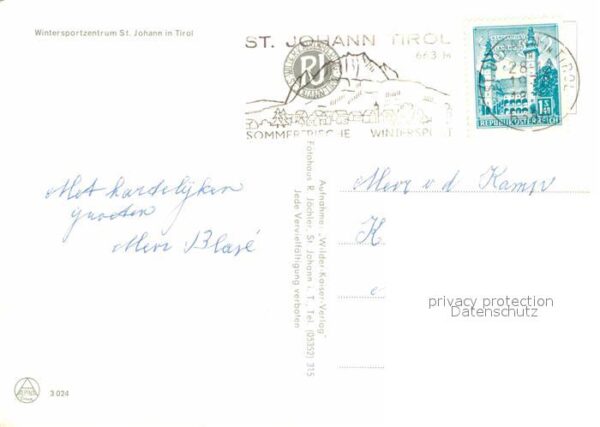 Wintersportzentrum St. Johann in Tirol
ST. JOHANN TIROL
663 M
SOMMERFRISCHE WINTERSPORT
REPUBLIK ÖSTERREICH
Met hartelijken
groeten
Mevr Blasé
Aufnahme: "Wilder-Kaiser-Verlag"
Fotohaus R. Jöchler, St. Johann i. T., Tel. (05352) 315
Jede Vervielfältigung verboten
Mevr v. d Kamp
K
privacy protection
Datenschutz
3 024